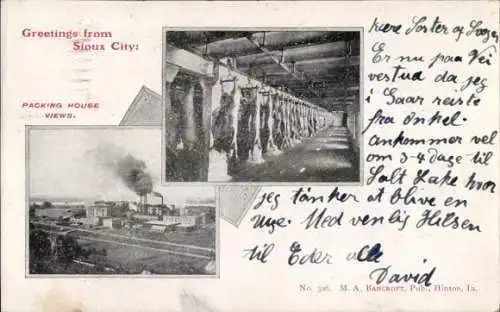 Greetings from
Sioux City:
PACKING HOUSE
VIEWS.
kære Søster og Svoger
Er nu paa Vei
vestud da jeg
i Gaar reiste
fra onkel.
ankommer vel
om 3-4 Dage til
Salt Lake hvor
jeg tänker at blive en
Uge. Med venlig Hilsen
til Eder alle
David
No. 326. M. A. BANCROFT, Pub., Hinton, Ia.